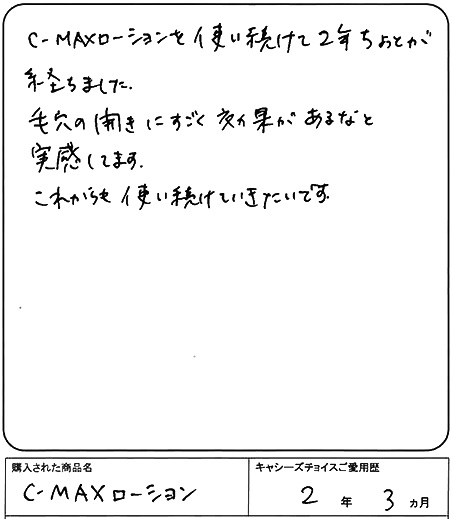 C-MAXローションを使い続けて2年ちょとが
経ちました.
毛穴の開きにすごく効果があるなと
実感してます.
これからも使い続けていきたいです.
購入された商品名
C-MAXローション
キャシーズチョイスご愛用歴
2 年 3 ヵ月